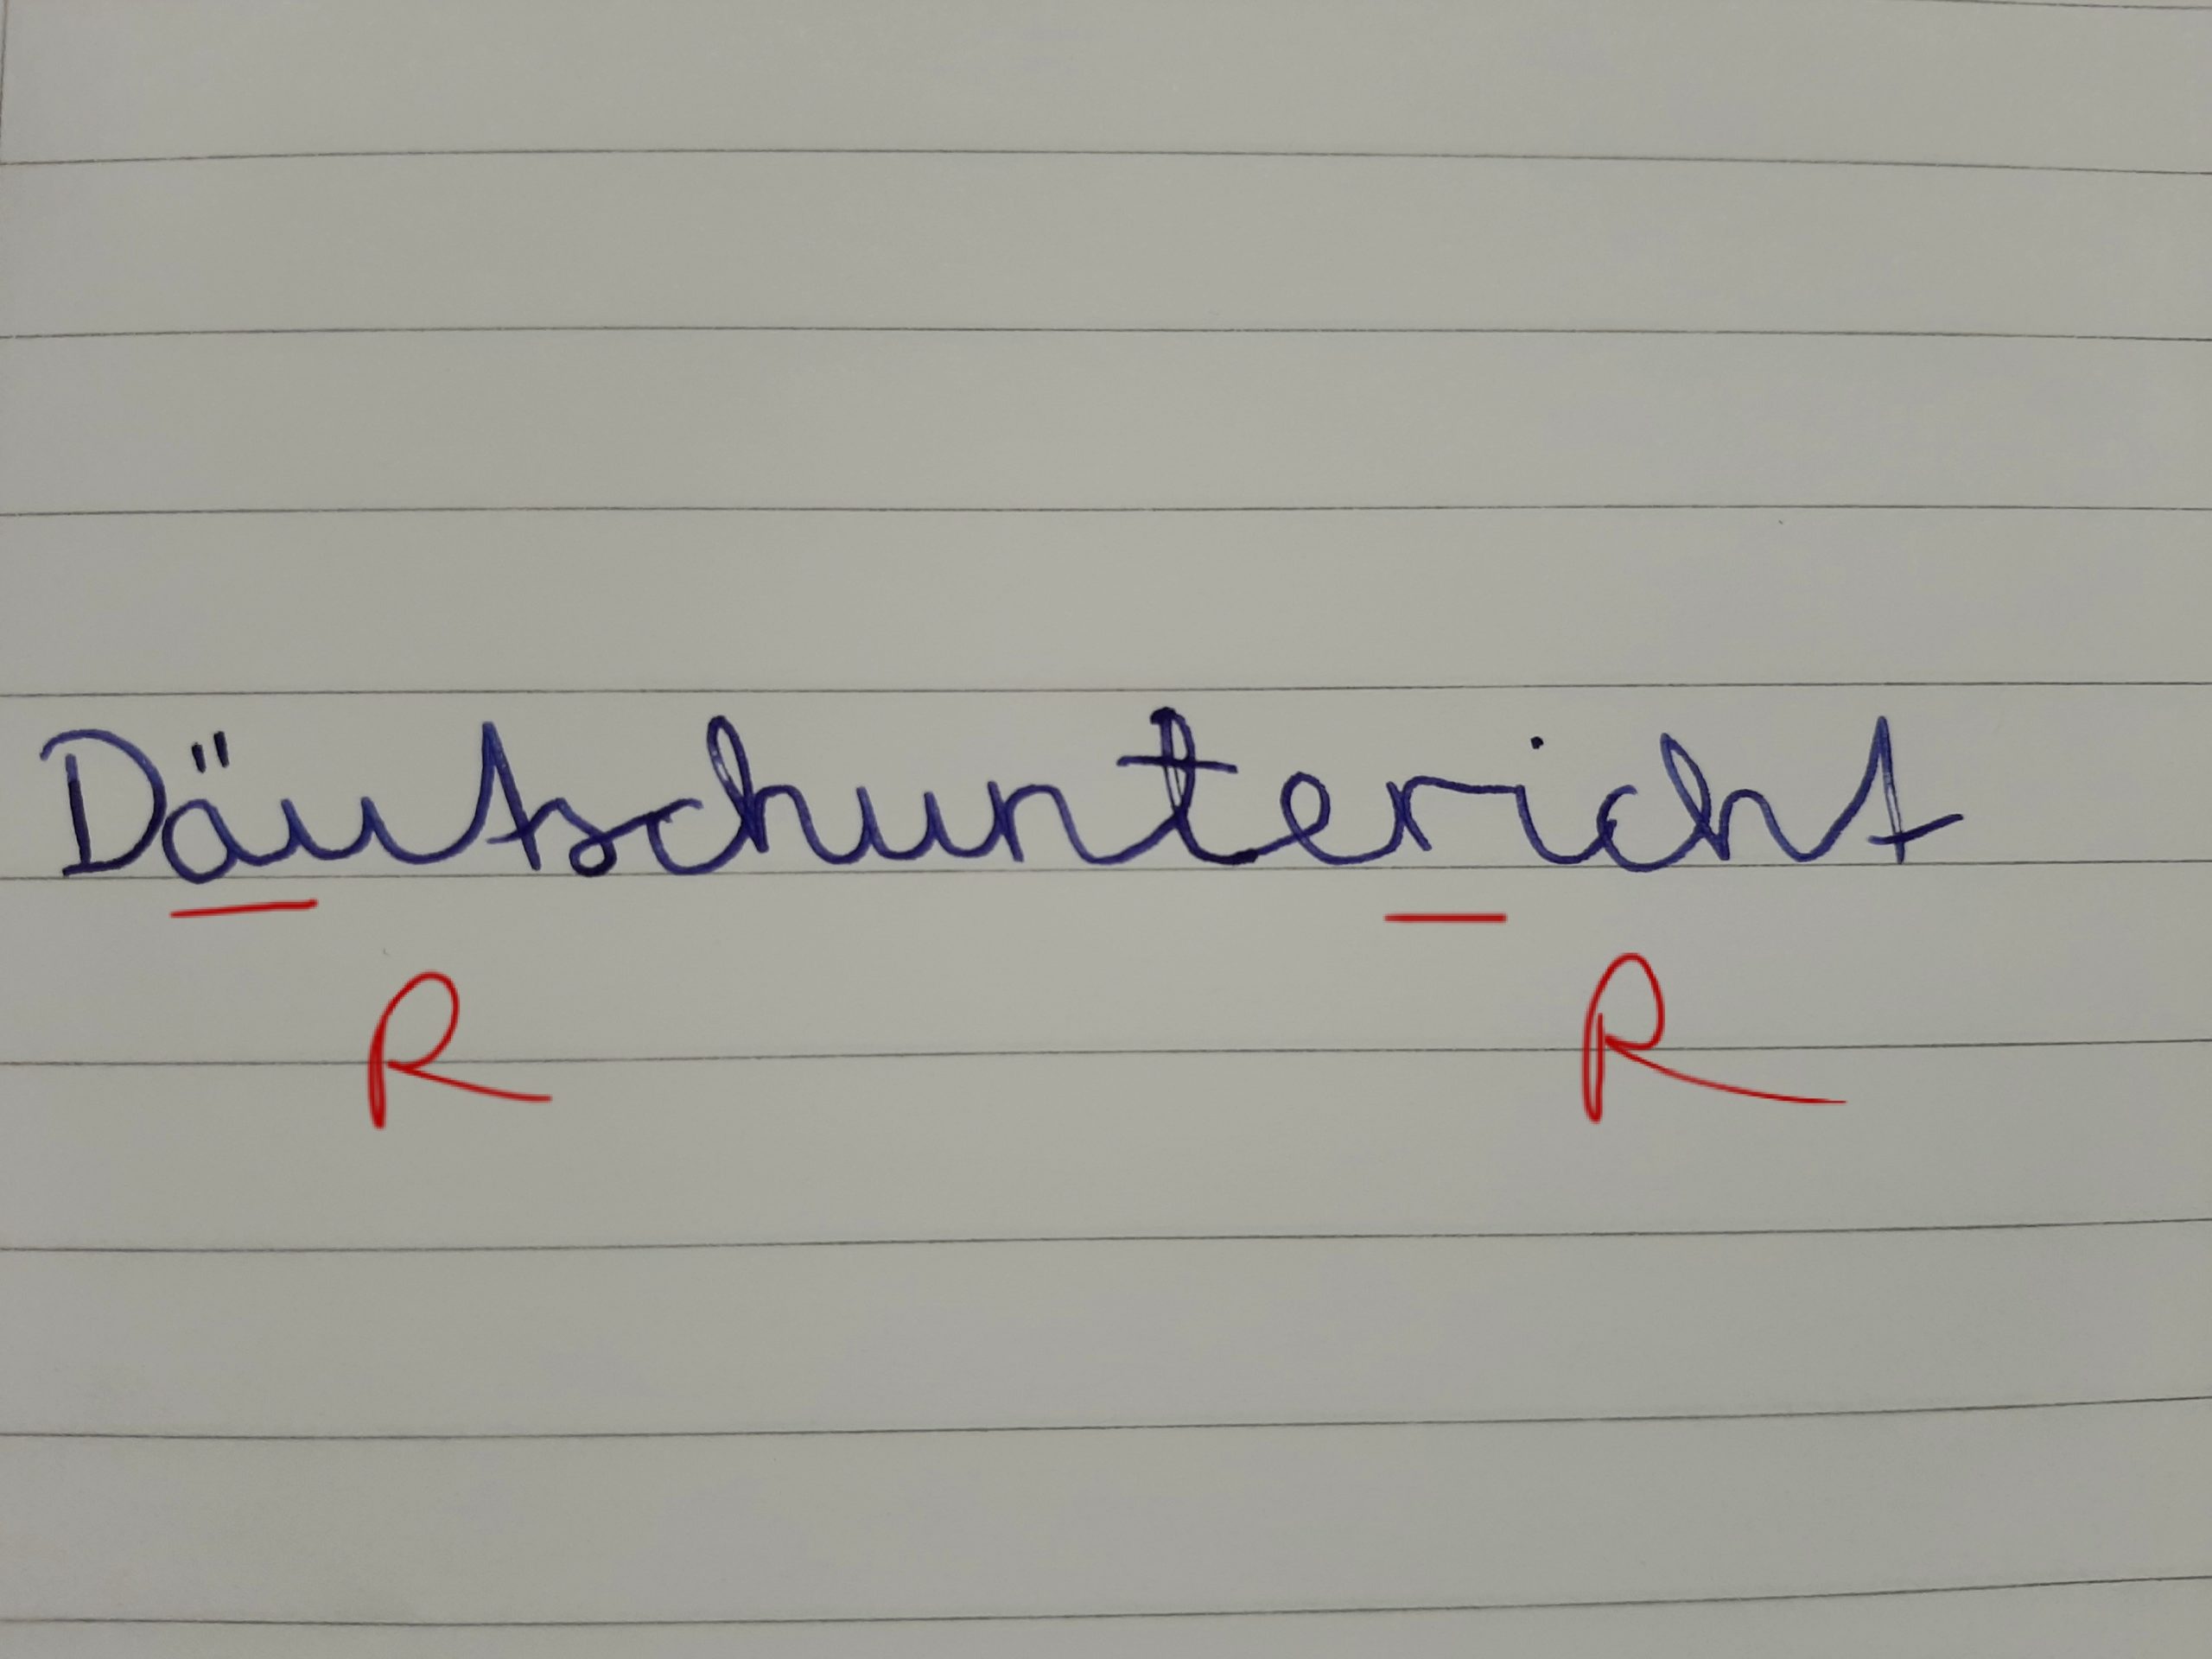 Däutschuntericht
R R